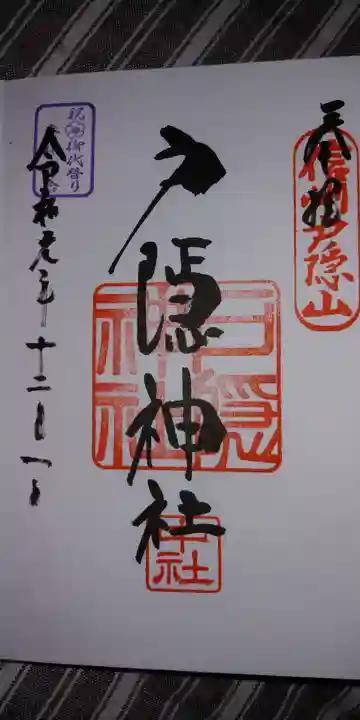 奉拝
信州戸隠山
戸隠神社
戸隠神社
中社
祝 御代替り
令和元年十二月一日